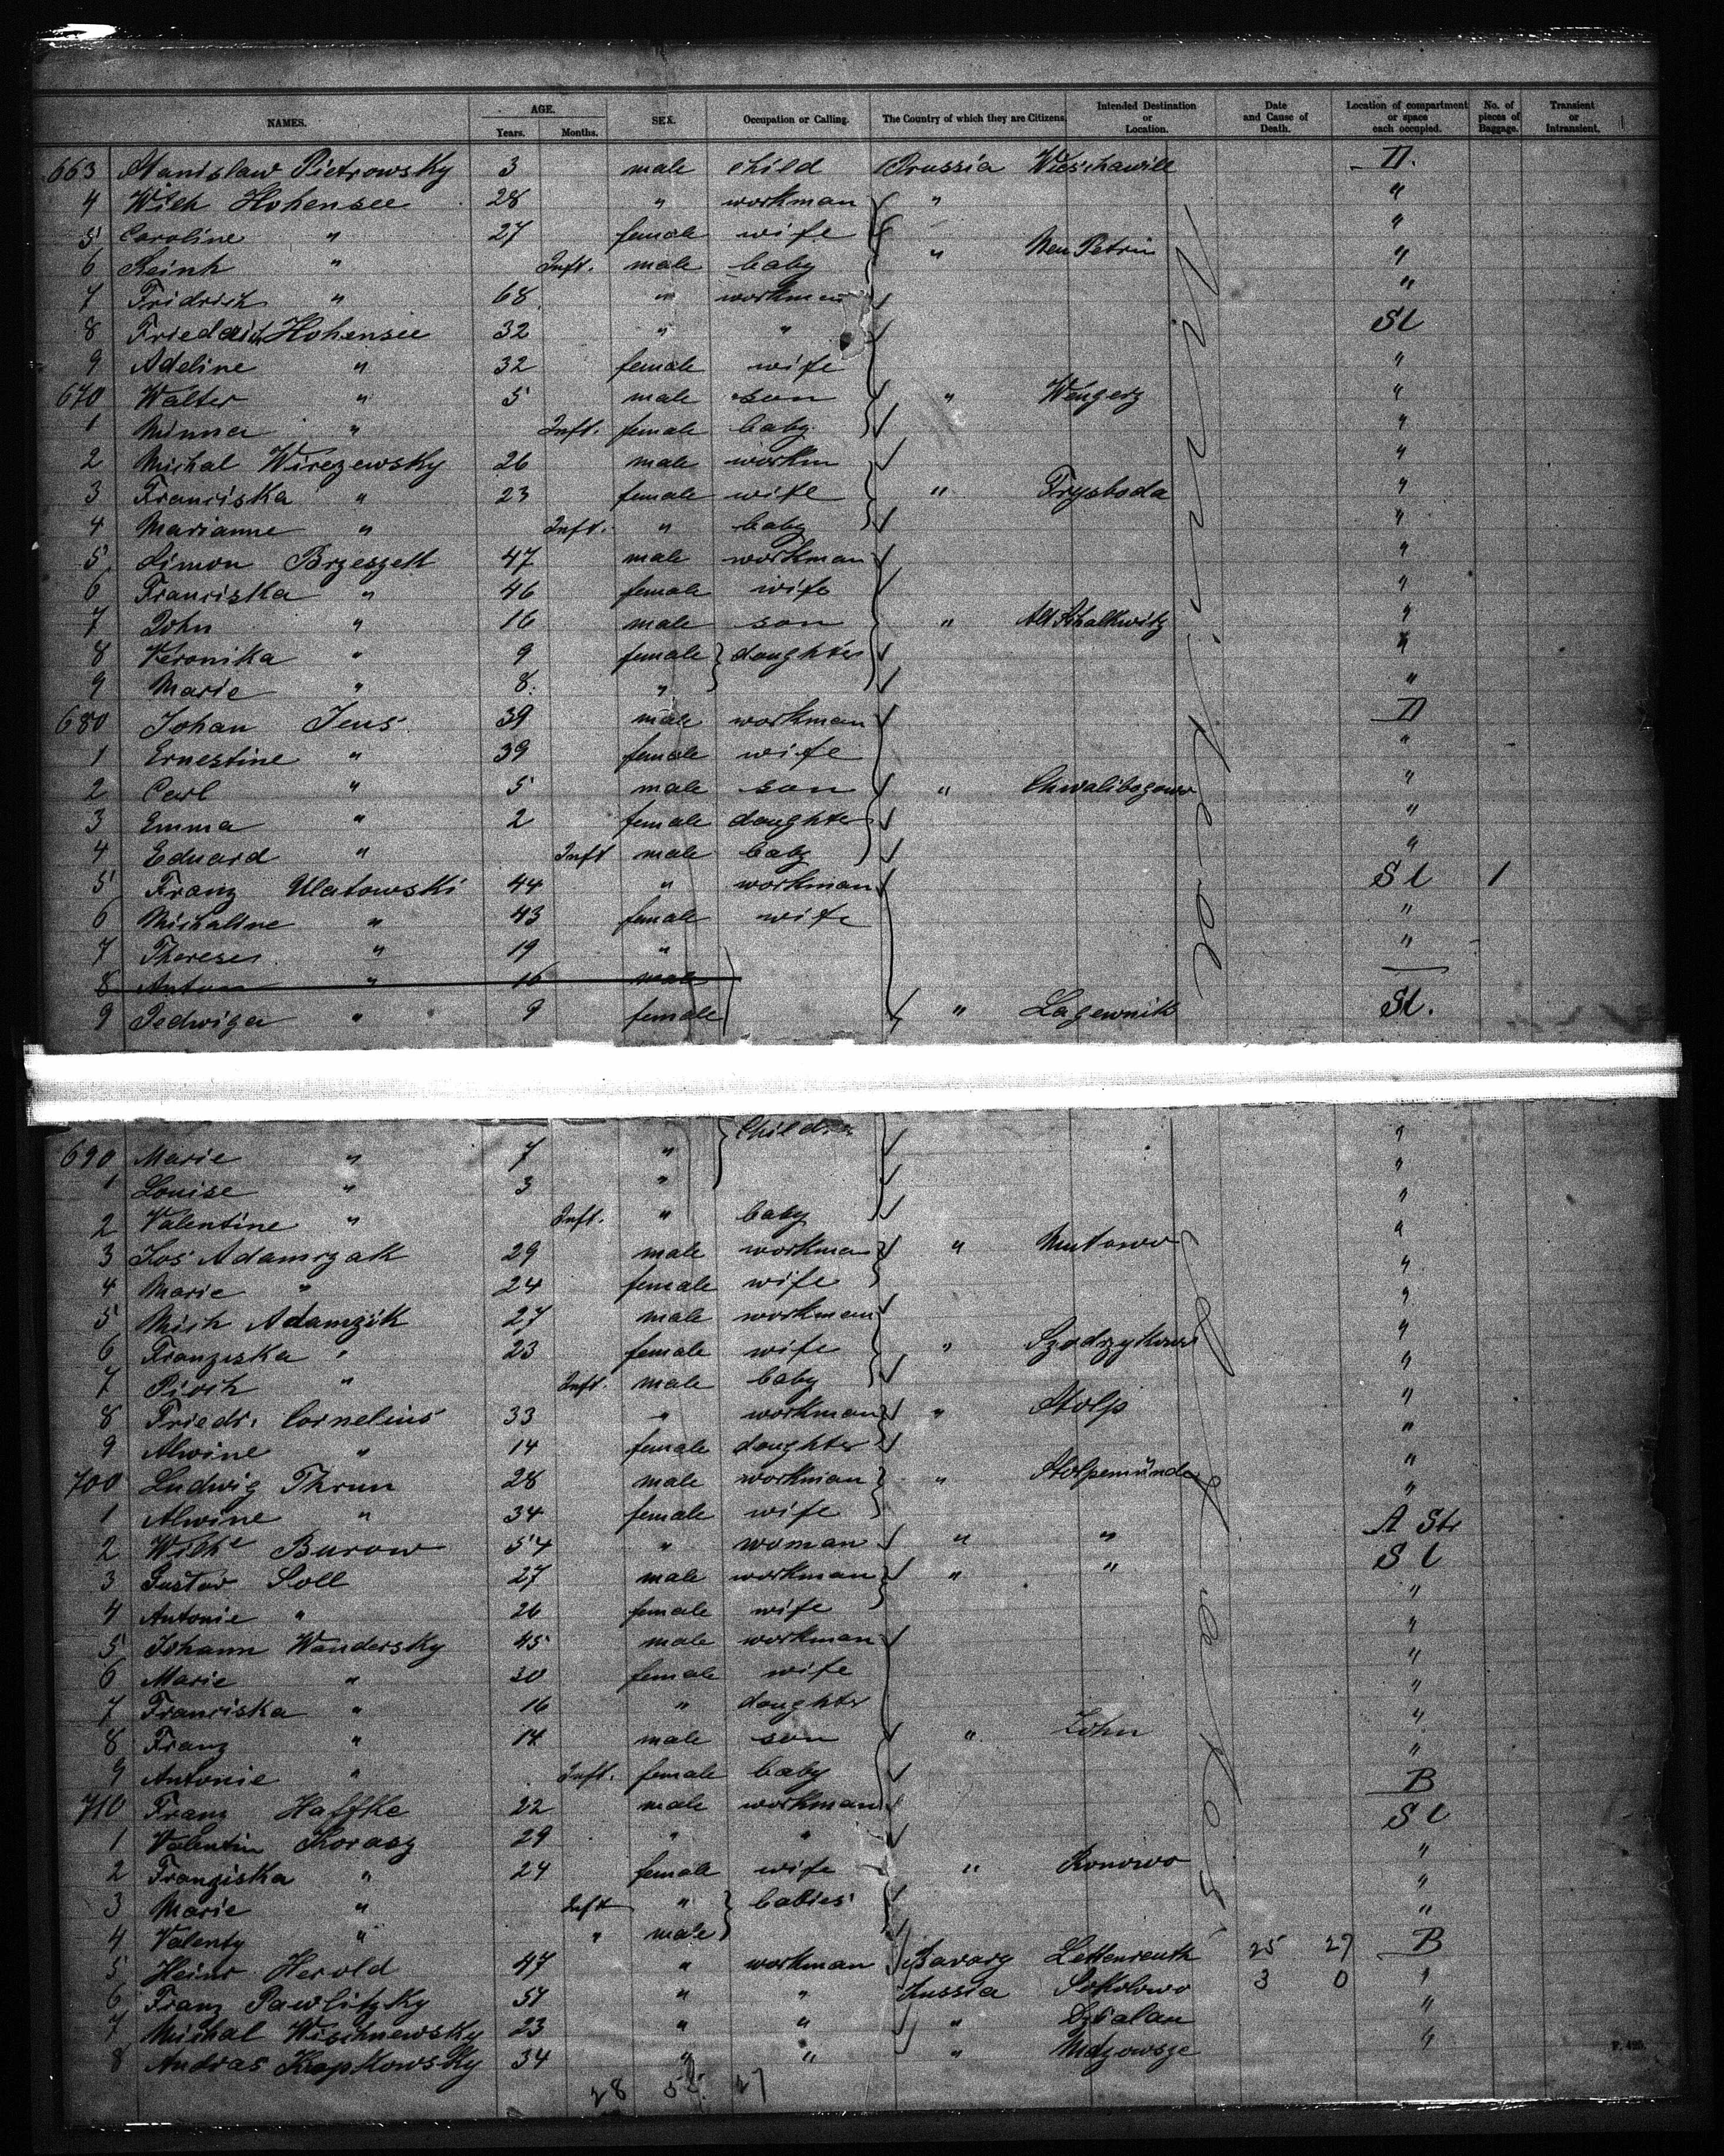 NAMES. AGE. Years. Months. SEX. Occupation or Calling. The Country of which they are Citizens. Intended Destination or Location. Date and Cause of Death. Location of compartment or space each occupied. No. of pieces of Baggage. Transient or Intransient.
663 Stanislaw Pietrowsky 3 male child Prussia II.
4 Wilh Hohensee 28 " workman " "
5 Caroline " 27 female wife "
6 Reinh " Inft. male baby " Neu Petrin "
7 Fridrich " 68 " workman "
8 Friedrich Hohensee 32 " " St
9 Adeline " 32 female wife "
670 Walter " 5 male son " Wengerz "
1 Minna " Inft. female baby "
2 Michal Wirezewsky 26 male workm "
3 Franciska " 23 female wife " Trysboda "
4 Marianne " Inft. " baby "
5 Simon Brzeszett 47 male workman "
6 Franciska " 46 female wife "
7 John " 16 male son " Alt Schalkwitz "
8 Veronika " 9 female daughters "
9 Marie " 8. " "
680 Johan Jens 39 male workman II
1 Ernestine " 39 female wife "
2 Carl " 5 male son " Chwalibogowo "
3 Emma " 2 female daughter "
4 Eduard " Inft male baby "
5 Franz Ulatowski 44 " workman St 1
6 Michaline " 43 female wife "
7 Therese " 19 " "
8 Anton " 16 male
9 Hedwiga " 9 female " Lagewnik St.
Childr.
690 Marie " 7 " "
1 Louise " 3 " "
2 Valentine " Inft. " baby "
3 Jos Adamczak 29 male workman " "
4 Marie " 24 female wife "
5 Mich Adamzik 27 male workman "
6 Franziska " 23 female wife " "
7 Piotr " Inft. male baby "
8 Friedr. Cornelius 33 " workman " Stolp "
9 Alwine " 14 female daughter "
700 Ludwig Thrun 28 male workman " Stolpemünde "
1 Alwine " 34 female wife "
2 Wilhe Burow 54 " woman " " A Str
3 Gustav Soll 27 male workman " " St
4 Antonie " 26 female wife "
5 Johann Wandersky 45 male workman "
6 Marie " 30 female wife "
7 Franciska " 16 " daughter "
8 Franz " 14 male son " Zohn "
9 Antonie " Inft. female baby "
710 Franz Haffke 22 male workman B
1 Valentin Korasz 29 " " St
2 Franziska " 24 female wife " Konowo "
3 Marie " Inft " babies "
4 Valenty " " male "
5 Heinr Herold 47 " workman Bavary Lettenreuth 25 27 B
6 Franz Pawlitzky 51 " " Russia Sokolowo 3 0 "
7 Michal Wischnewsky 23 " " " Dzialau "
8 Andras Kropkowsky 34 " " " "
28 55. 27